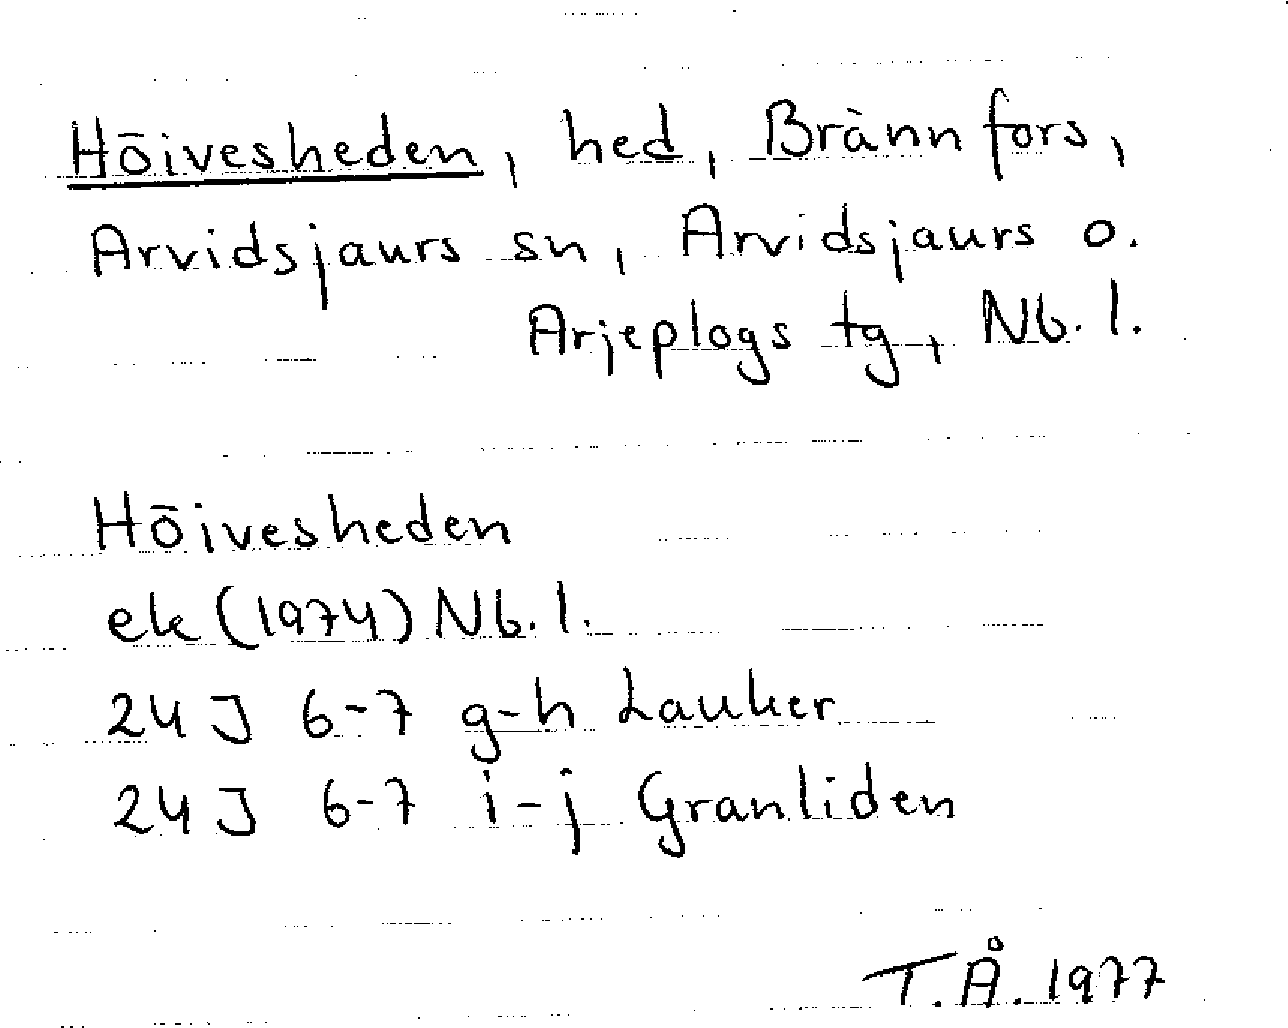 Höivesheden, hed, Brännfors,
Arvidsjaurs sn, Arvidsjaurs o.
Arjeplogs tg, Nb. l.
Höivesheden
ek (1974) Nb. l.
24 J 6-7 g-h Lauker
24 J 6-7 i-j Granliden
T.Å. 1977